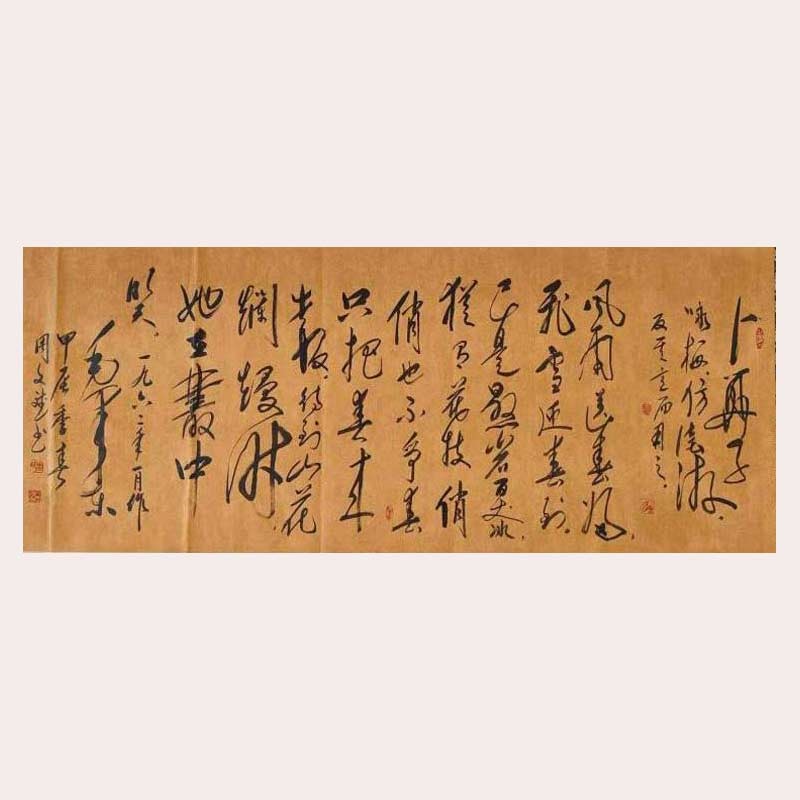 卜算子
咏梅、仿
反其意而用之、
风雨送春归,
飞雪迎春到,
已是悬岩百丈冰,
犹有花枝俏
俏也不争春
只把春来
报,待到山花
烂熳时
她在叢中
一九六二年一月作
毛泽东
甲辰季春
周文